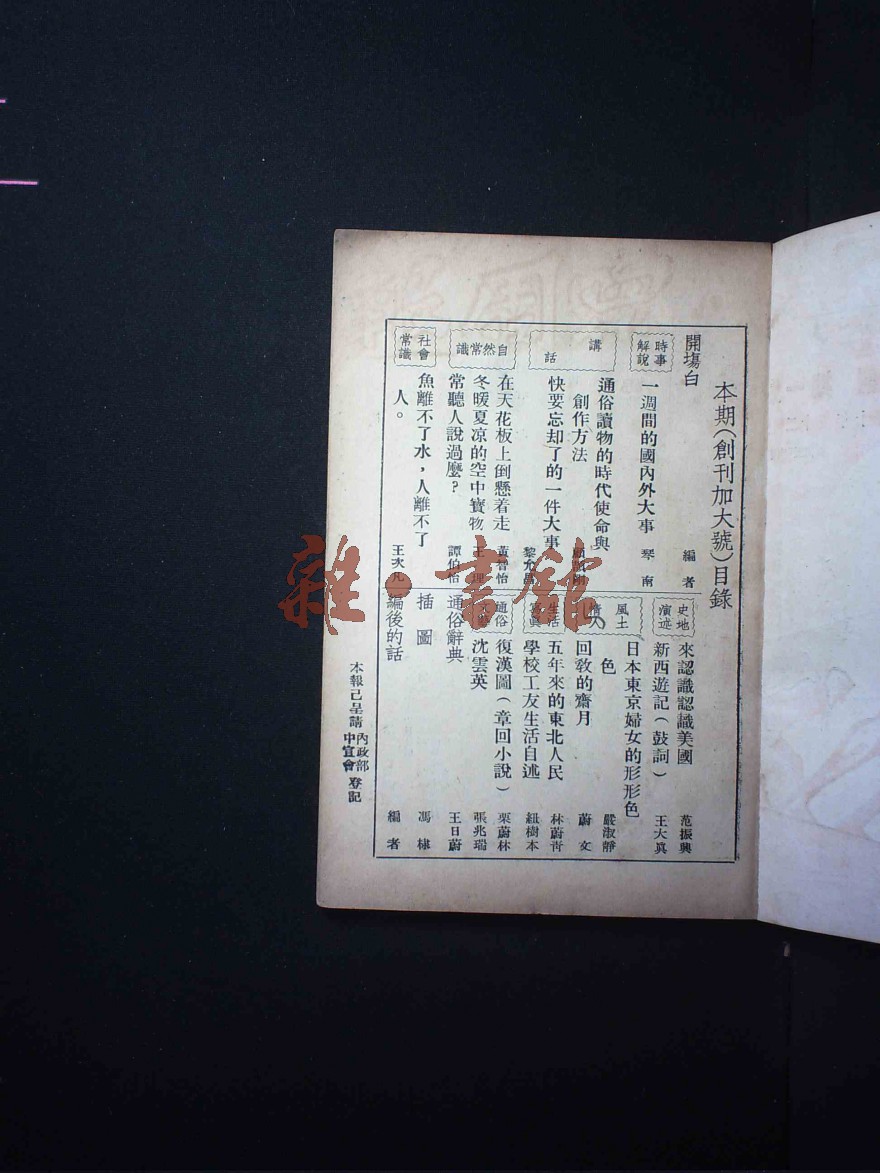 本期（創刊加大號）目錄
開塲白 編者
時事解說
一週間的國內外大事 琴南
講話
通俗讀物的時代使命與
創作方法
快要忘却了的一件大事 黎
自然常識
在天花板上倒懸着走 黃曾怡
冬暖夏凉的空中寶物 王理
常聽人說過麼？ 譚伯怡
社會常識
魚離不了水，人離不了
人。 王次凡
史地演述
來認識認識美國 范振興
新西遊記（鼓詞） 王大眞
風土人情
日本東京婦女的形形色
色 嚴淑靜
回教的齋月 蔚文
生活寫眞
五年來的東北人民 林蔚靑
學校工友生活自述 鈕樹本
通俗文藝
復漢圖（章回小說） 栗蔚林
沈雲英 張兆瑞
通俗辭典 王日蔚
插圖 馮棣
編後的話 編者
本報已呈請內政部中宣會登記
雜·書館